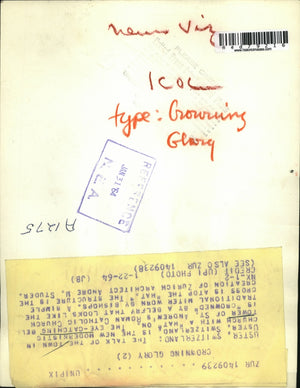 news Viz
1 COL
type: Crowning
Glory
REFERENCE
JAN 31 '64
N. E. A.
A1275
ZUR 1409239 UNIPIX
CROWNING GLORY (2)
USTER, SWITZERLAND: THE TALK OF THE TOWN IN
USTER, SWITZERLAND, IS THE NEW MODERNISTIC
CHURCH WITH A "HAT" ON. THE EYE-CATCHING BELL
TOWER OF ST. ANDREW'S ROMAN CATHOLIC CHURCH
IS "CROWNED" BY A BELFRY THAT LOOKS LIKE THE
TRADITIONAL MITER WORN BY BISHOPS. A SIMPLE
CROSS IS ATOP THE "HAT". THE STRUCTURE IS THE
CREATION OF ZURICH ARCHITECT ANDRE M. STUDER.
CREDIT (UPI PHOTO) 1-22-64 (JB)
(SEE ALSO ZUR 1409238)